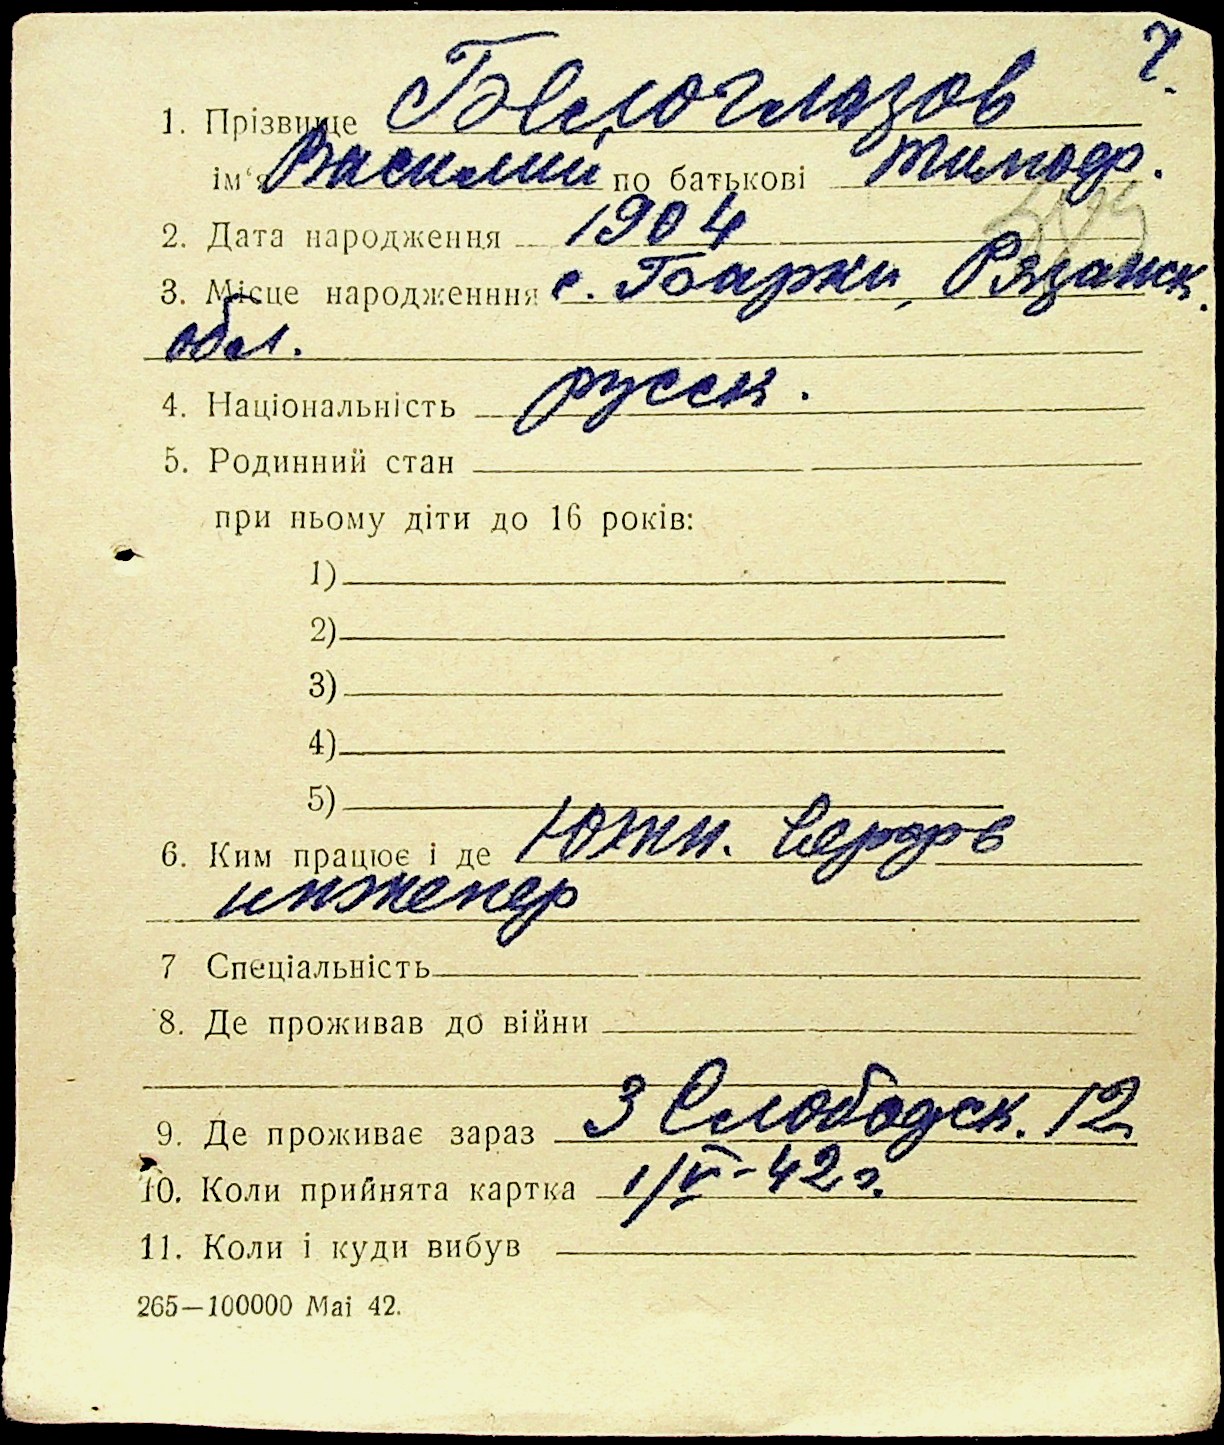 ч.
1. Прізвище Белоглазов
ім'я Василий по батькові Тимоф.
2. Дата народження 1904
3. Місце народженння с. Барки, Рязанск.
обл.
4. Національність русск.
5. Родинний стан
при ньому діти до 16 років:
1)
2)
3)
4)
5)
6. Ким працює і де Южн. верфь
инженер
7 Спеціальність
8. Де проживав до війни
9. Де проживає зараз 3 Слободск. 12
10. Коли прийнята картка 1/VI-42 г.
11. Коли і куди вибув
265—100000 Mai 42.